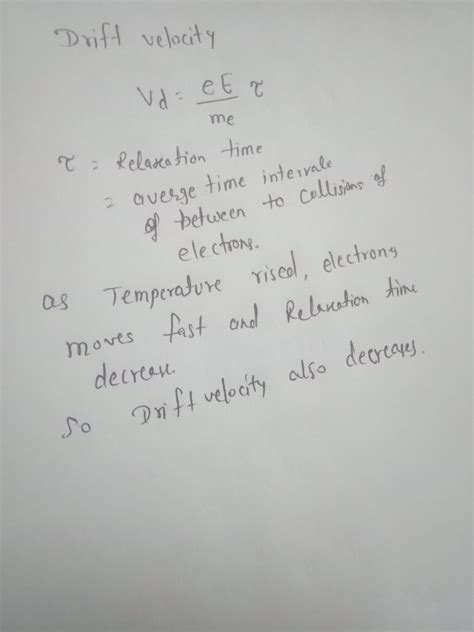 Drift velocity
Vd = eE/me τ
τ = Relaxation time
= averge time intervale
of between to collisions of
electrons.
as Temperature rised, electrons
moves fast and Relaxation time
decrease.
So Drift velocity also decreases.